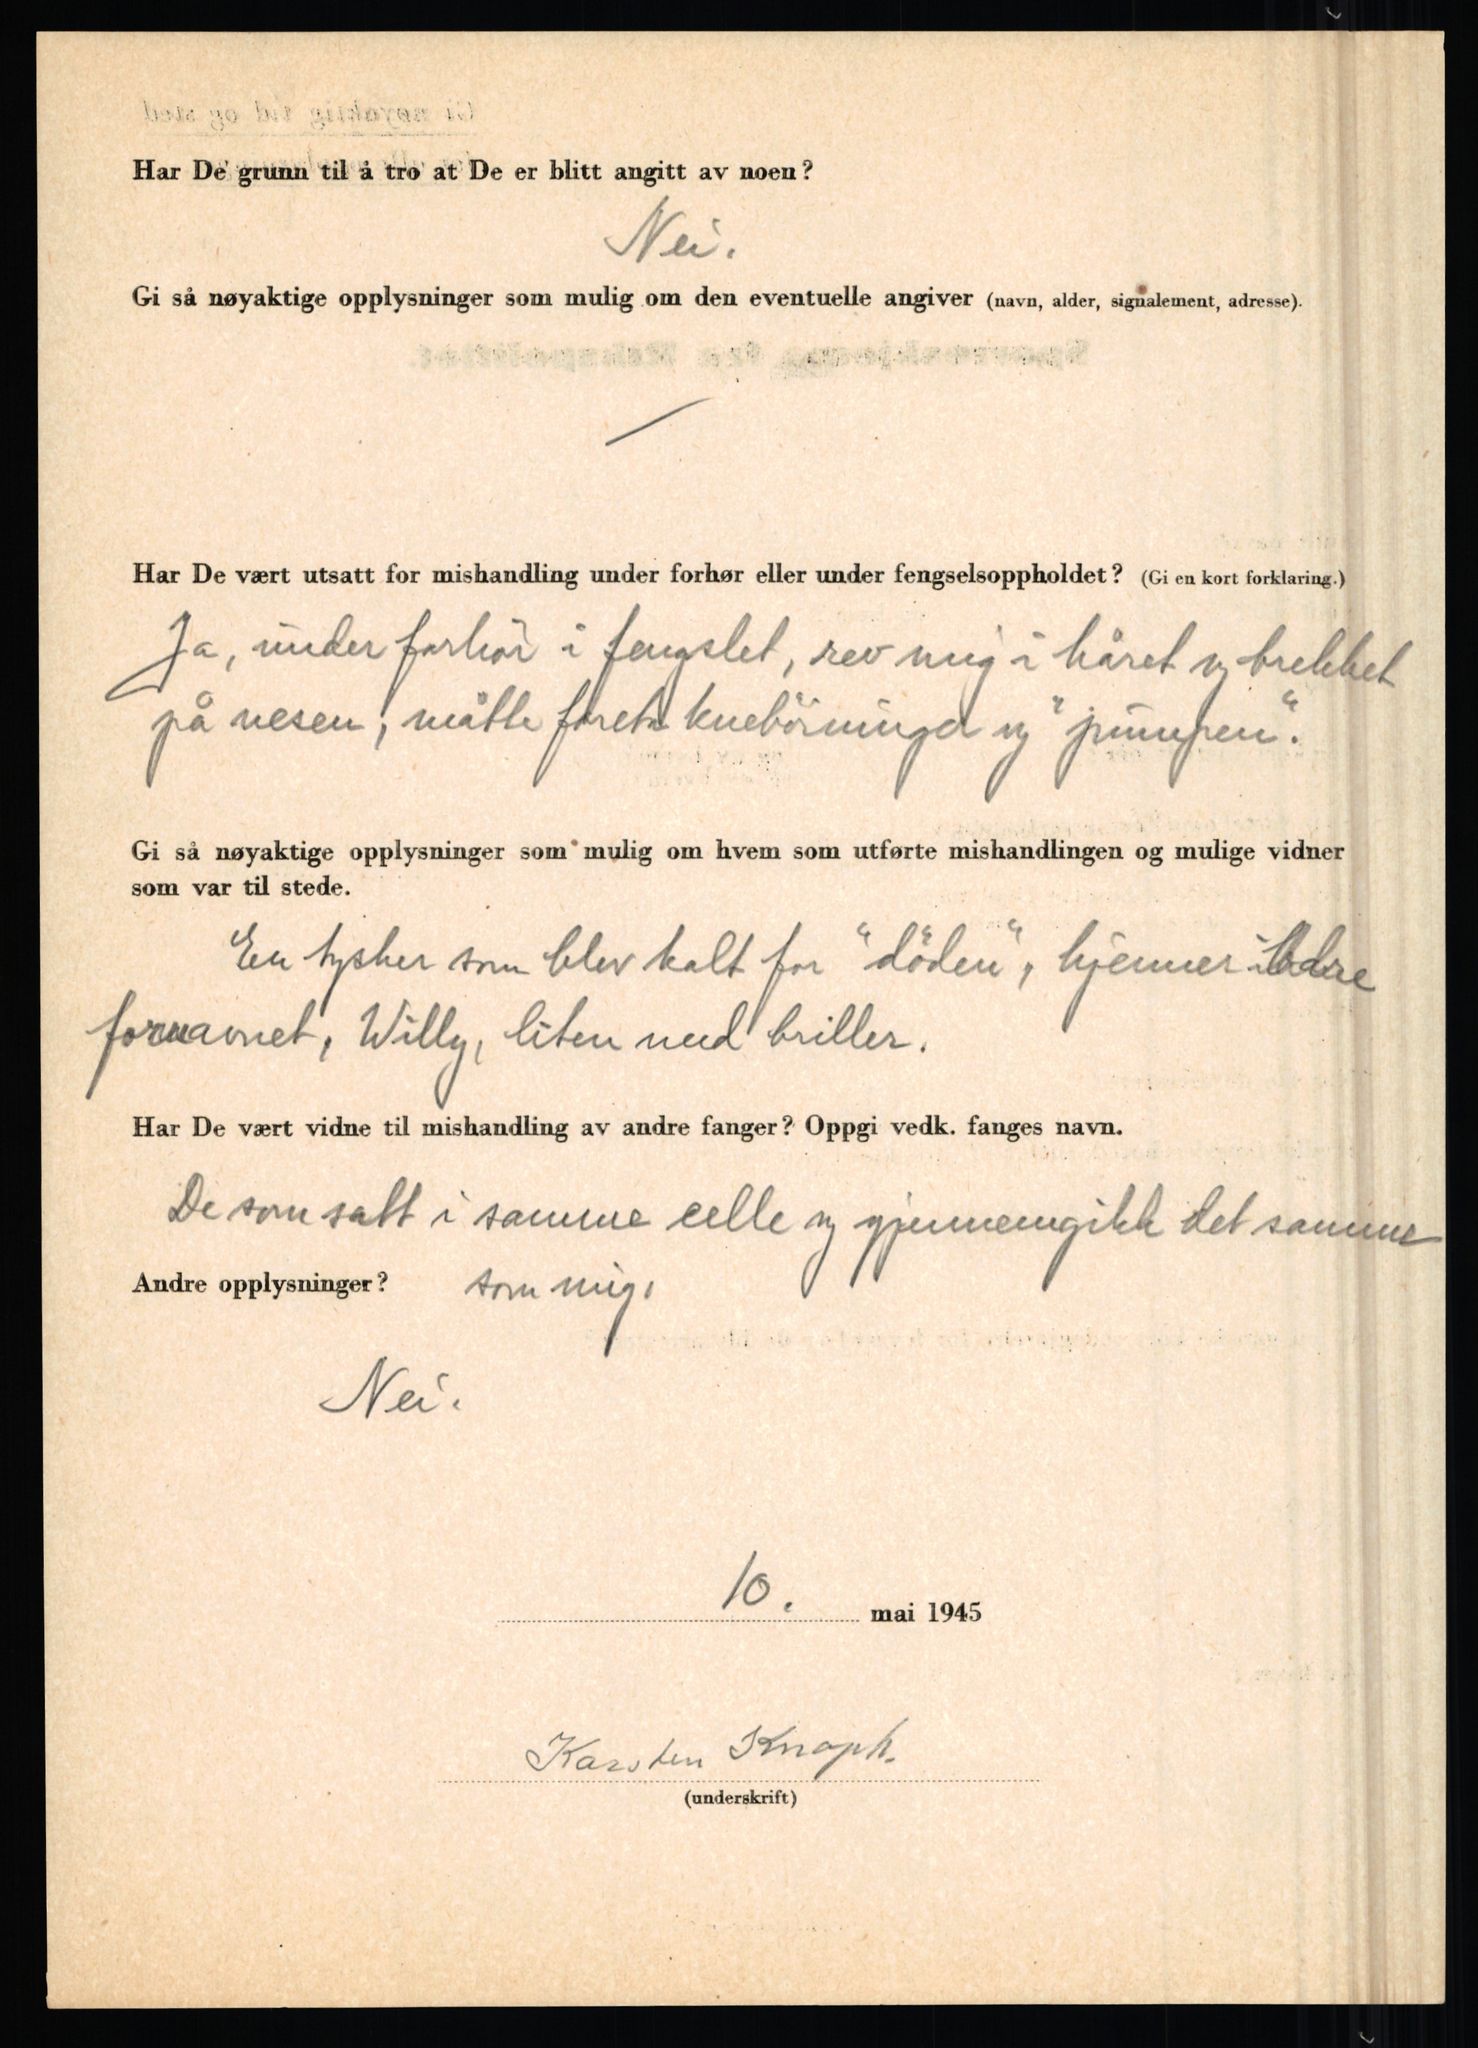 Har De grunn til å tro at De er blitt angitt av noen?
Nei.
Gi så nøyaktige opplysninger som mulig om den eventuelle angiver (navn, alder, signalement, adresse).
Har De vært utsatt for mishandling under forhør eller under fengselsoppholdet? (Gi en kort forklaring.)
Ja, under forhör i fengslet, rev mig i håret og brekket
på nesen, måtte foreta knebörninger og "pumpen".
Gi så nøyaktige opplysninger som mulig om hvem som utførte mishandlingen og mulige vidner
som var til stede.
En tysker som blev kalt for "döden", kjenner bare
fornavnet, Willy, liten med briller.
Har De vært vidne til mishandling av andre fanger? Oppgi vedk. fanges navn.
De som satt i samme celle og gjennemgikk det samme
Andre opplysninger? som mig.
Nei.
10. mai 1945
Karsten Knoph.
(underskrift)